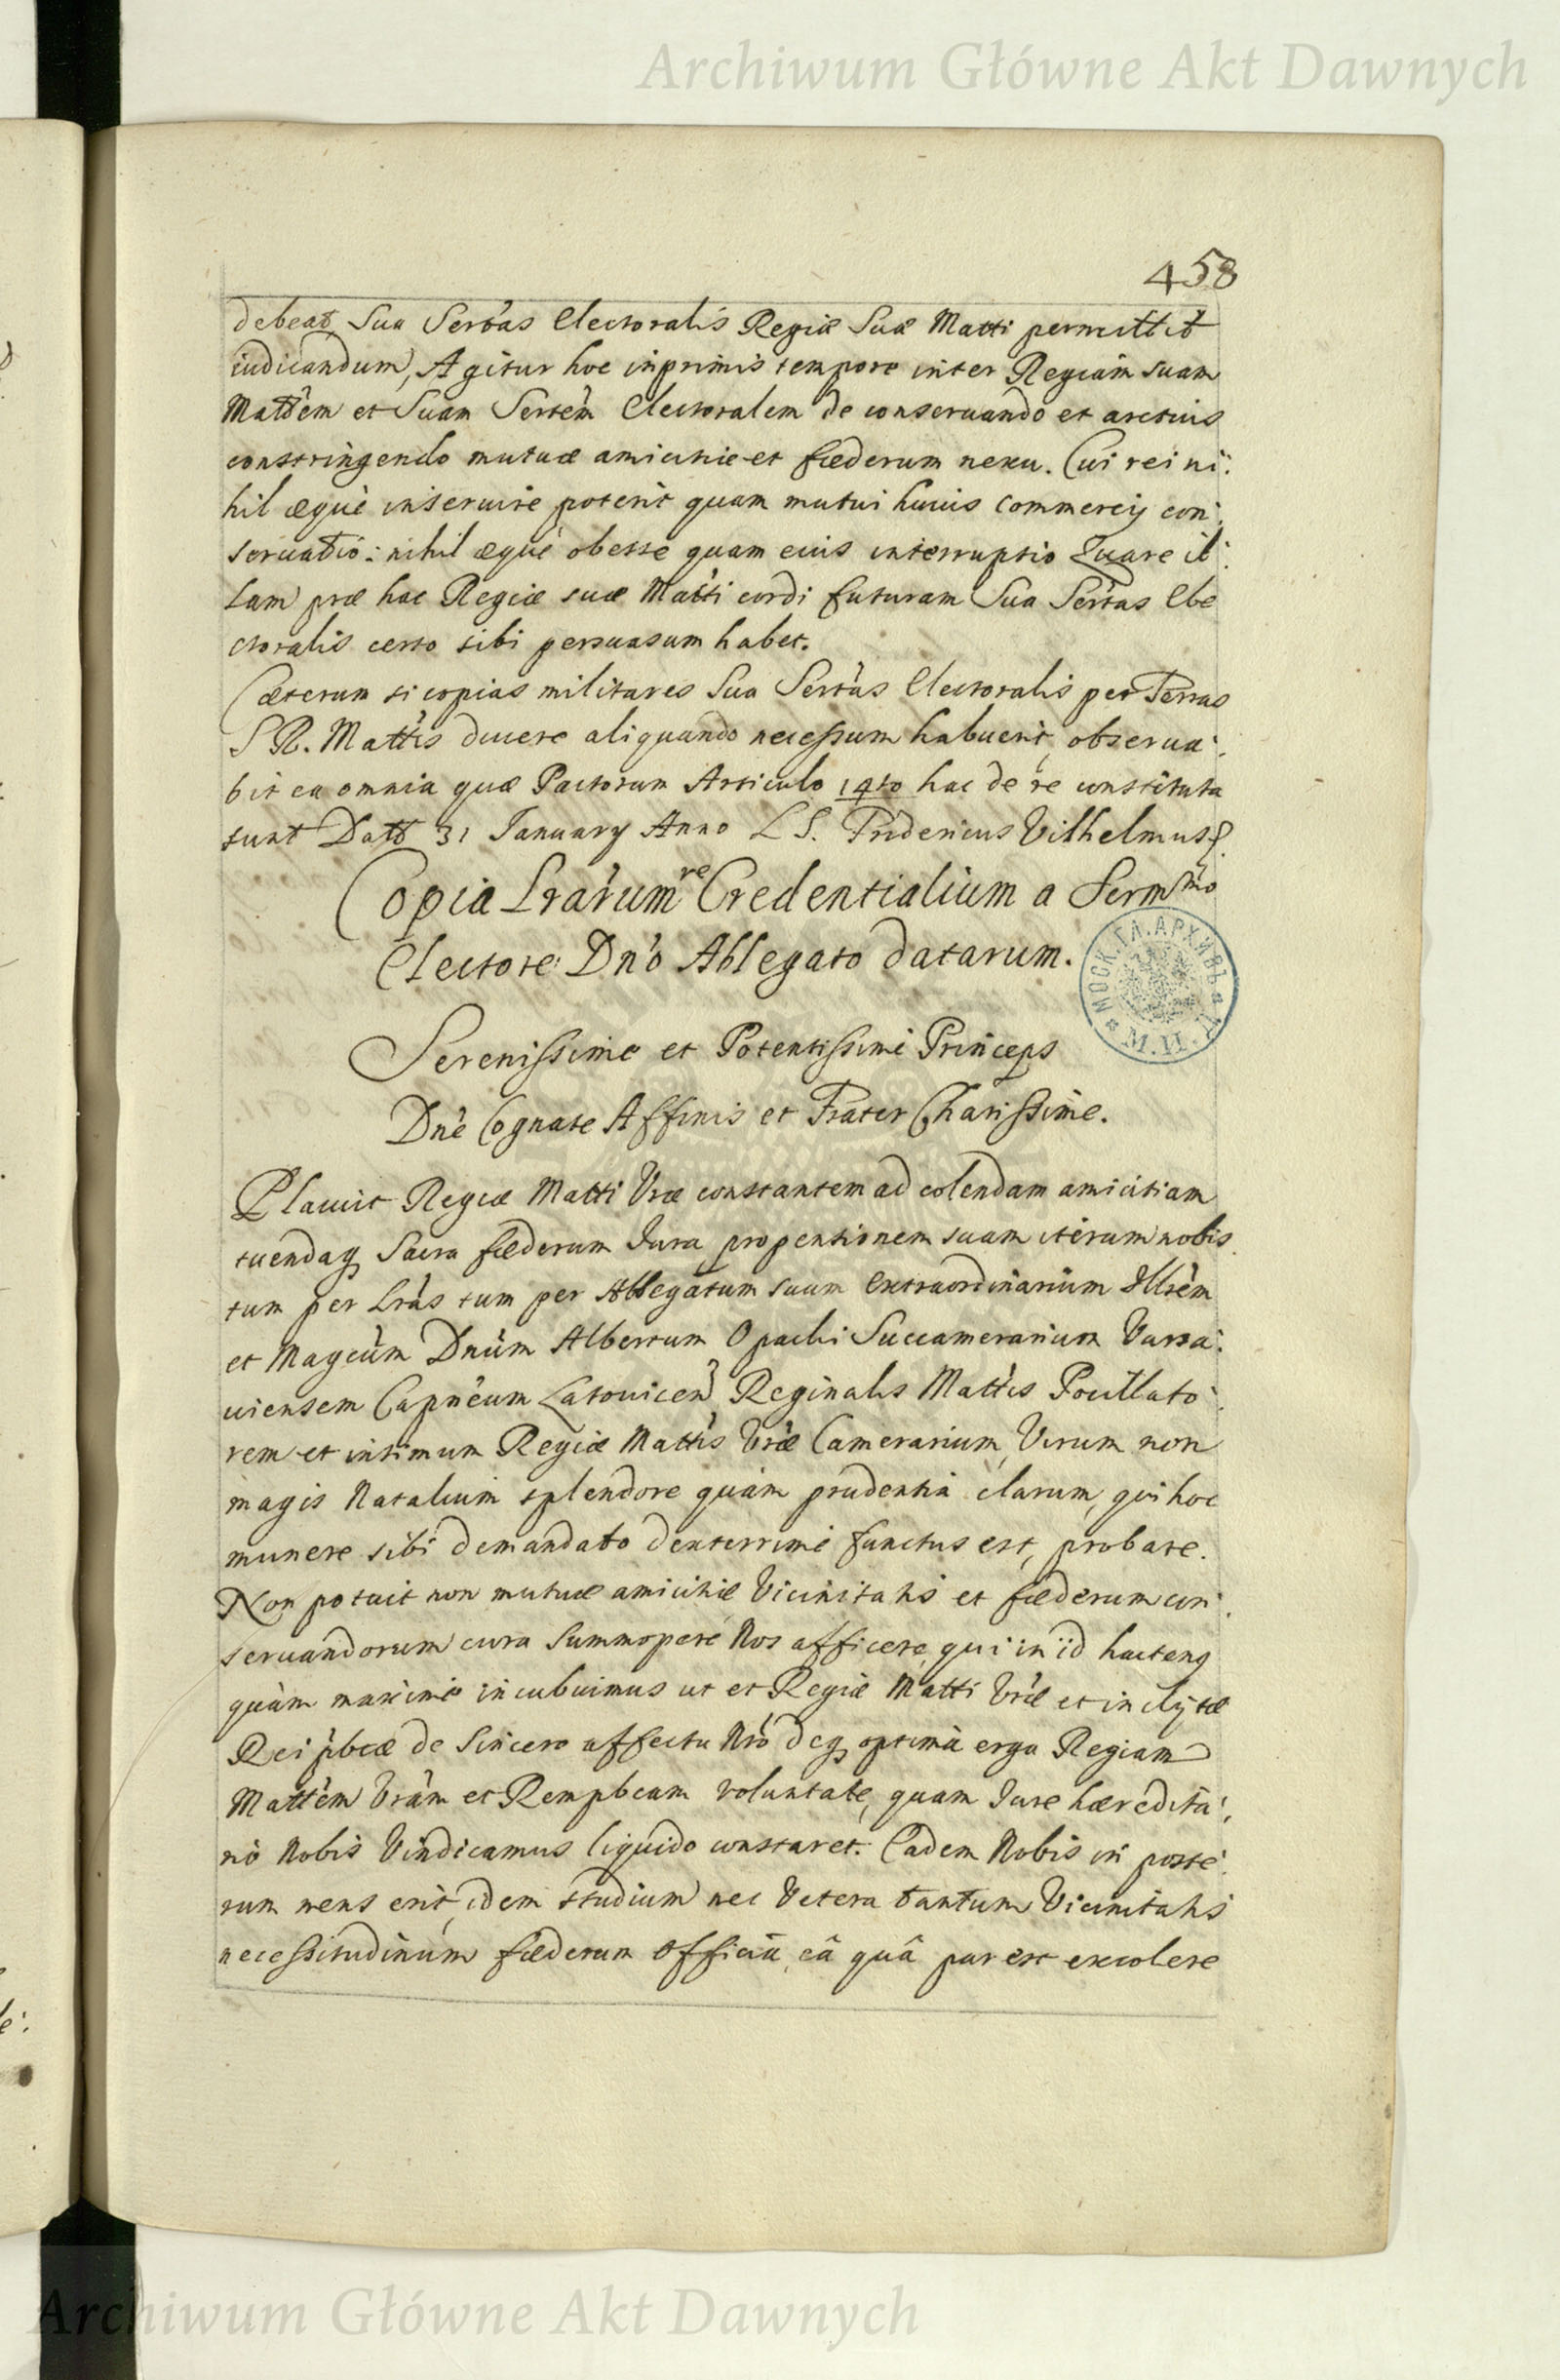 Archiwum Główne Akt Dawnych
458
debeat, Sua Sertas Electoralis Regiæ Suæ Matti permittit
iudicandum, Agitur hoc inprimis tempore inter Regiam suam
Mattem et Suam Sertem Electoralem de conseruando et arctius
constringendo mutuæ amicitiæ et fœderum nexu. Cui rei ni:
hil æque inseruire poterit quam mutui huius Commercij con:
seruatio: nihil æque obesse quam eius interruptio Quare il:
lam præ hac Regiæ suæ Matti cordi futuram Sua Sertas Ele
ctoralis certo sibi persuasum habet.
Cæterum si copias militares Sua Sertas Electoralis per Terras
S R. Mattis ducere aliquando necessum habuerit, observa:
bit ea omnia quæ Pactorum Articulo 14to hac de re constituta
sunt Datt 31 January Anno L S. Fridericus Vilhelmus
Copia Lrarum Credentialium a Sermmo
Electore Dno Ablegato datarum.
МОСК. ГЛ. АРХИВЪ
М. И. Д.
Serenissime et Potentissime Princeps
Dne Cognate Affinis et Frater Charissime.
Placuit Regiæ Matti Vræ constantem ad colendam amicitiam
tuendaq Sacra fœderum Jura propensionem suam iterum nobis
tum per Lras tum per Ablegatum suum Extraordinarium Illrem
et Magcum Dnum Albertum Opachi Succamerarium Varsa:
uiensem Capneum Latouicen Reginalis Mattis Pocillato:
rem et intimum Regiæ Mattis Vræ Camerarium, Virum non
magis Natalium splendore quam prudentia clarum, qui hoc
munere sibi demandato dexterrime functus est, probare.
Non potuit non mutuæ amicitiæ Vicinitatis et fœderum con:
seruandorum cura Summopere Nos afficere, qui in id hactenq
quàm maxime incubuimus ut et Regiæ Matti Vræ et inclytæ
Rei pbcæ de Sincero affectu Nro deq optima erga Regiam
Mattem Vram et Rempbcam voluntate, quam Jure hæredita:
rio Nobis Vindicamus liquido constaret. Eadem Nobis in poste:
rum mens erit, idem studium nec Vetera tantum Vicinitatis
necessitudinum fœderum Officia, eâ quâ par est excolere
Archiwum Główne Akt Dawnych